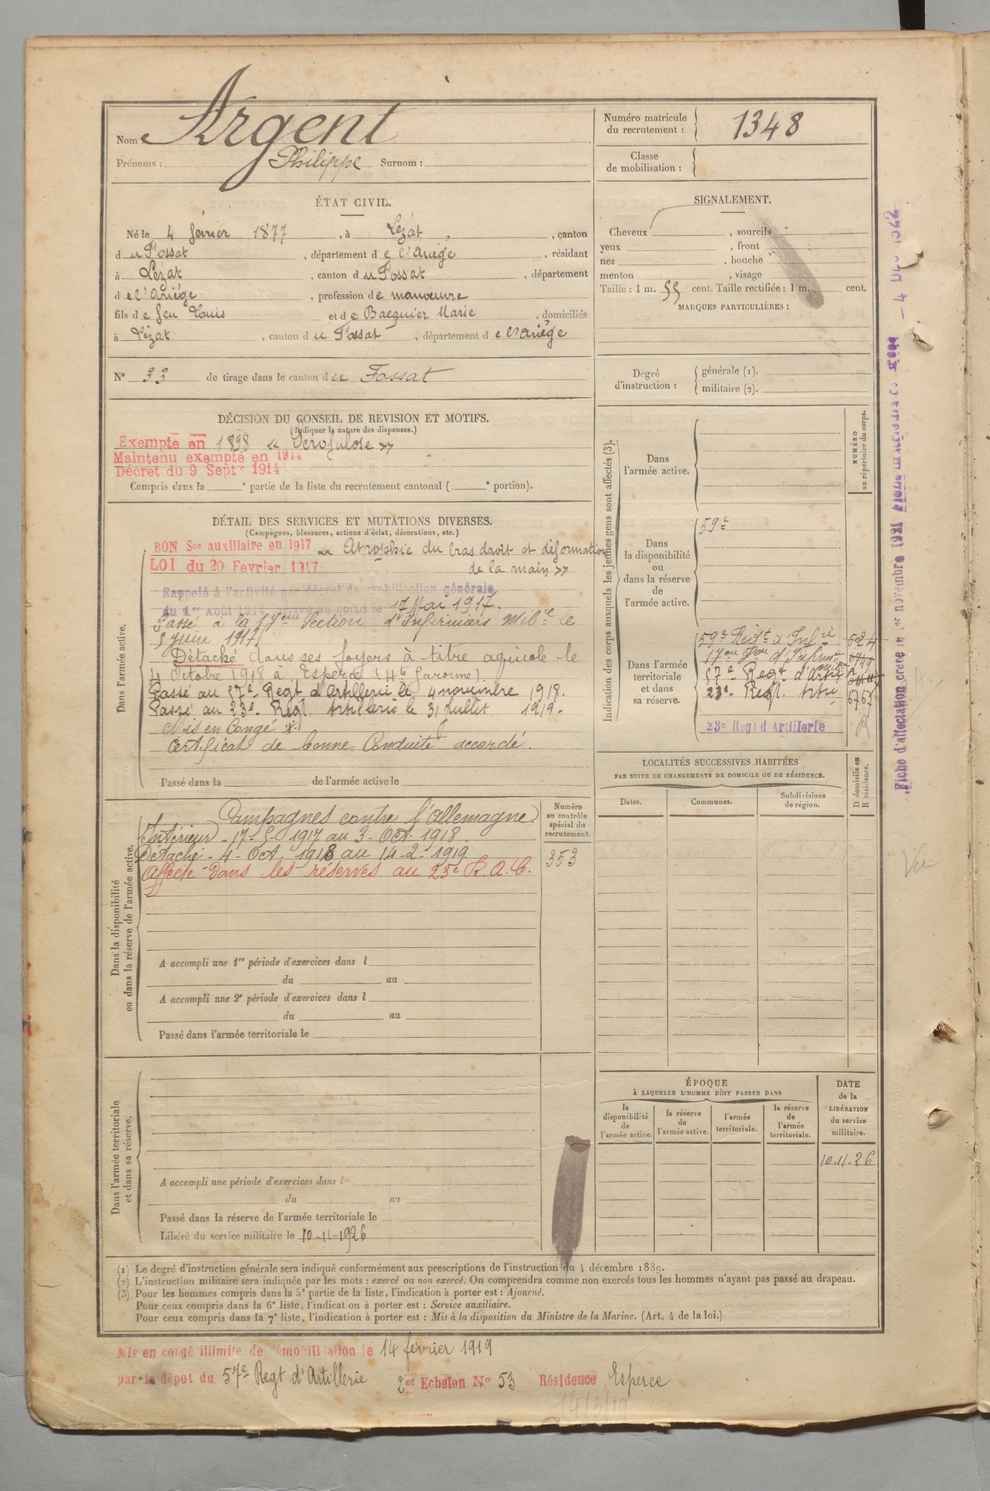 Nom Argent
Prénoms : Philippe Surnom :
ÉTAT CIVIL.
Né le 4 février 1877, à Lézat, canton
du Fossat, département de l'Ariège, résidant
à Lézat, canton du Fossat, département
de l'Ariège, profession de manœuvre
fils de feu Louis et de Baequier Marie, domiciliés
à Lézat, canton du Fossat, département de l'Ariège
N° 33 de tirage dans le canton du Fossat
DÉCISION DU CONSEIL DE REVISION ET MOTIFS.
(Indiquer la nature des dispenses.)
Exempté en 1898 « Scrofulose »
Maintenu exempté en 1914
Décret du 9 Sept 1914
Compris dans la e partie de la liste du recrutement cantonal ( e portion).
DÉTAIL DES SERVICES ET MUTATIONS DIVERSES.
(Campagnes, blessures, actions d'éclat, décorations, etc.)
BON Sce auxiliaire en 1917 « Atrophie du bras droit et déformation
LOI du 20 Fevrier 1917 de la main »
Dans l'armée active.
Rappelé à l'activité par décret de mobilisation générale
du 1er Août 1914 17 Mai 1917.
Passé à la 17ème Section d'Infirmiers Milres le
5 Juin 1917
Détaché dans ses foyers à titre agricole le
4 Octobre 1918 à Esperce (Hte Garonne).
Passé au 57e Regt d'Artillerie le 4 novembre 1918.
Passé au 23e Regt. Artillerie le 31 Juillet 1919.
Mis en Congé
Certificat de bonne Conduite accordé.
Passé dans la de l'armée active le
Dans la disponibilité
ou dans la réserve de l'armée active.
Campagnes contre l'Allemagne
Intérieur - 17-5-1917 au 3-Oct. 1918.
Détaché - 4-Oct. 1918 au 14-2-1919
Affecté dans les réserves au 23e R.A.C.
Numéro
au contrôle
spécial du
recrutement.
353
A accompli une 1re période d'exercices dans l
du au
A accompli une 2e période d'exercices dans l
du au
Passé dans l'armée territoriale le
Dans l'armée territoriale
et dans sa réserve.
A accompli une période d'exercices dans l
du au
Passé dans la réserve de l'armée territoriale le
Libéré du service militaire le 10-11-1926
Numéro matricule
du recrutement : 1348
Classe
de mobilisation :
SIGNALEMENT.
Cheveux , sourcils
yeux , front
nez , bouche
menton , visage
Taille : 1 m. 55 cent. Taille rectifiée : 1 m. cent.
MARQUES PARTICULIÈRES :
Degré
d'instruction :
générale (1).
militaire (2).
Indication des corps auxquels les jeunes gens sont affectés (3).
NUMÉRO
au répertoire du corps.
Dans
l'armée active.
Dans
la disponibilité
ou
dans la réserve
de
l'armée active.
59e
Dans l'armée
territoriale
et dans
sa réserve.
59e Regt d'Infie
57e Regt d'Artie
23e Regt. Artie 6767
23e Regt d'Artillerie
LOCALITÉS SUCCESSIVES HABITÉES
PAR SUITE DE CHANGEMENTS DE DOMICILE OU DE RÉSIDENCE.
Dates.
Communes.
Subdivisions
de région.
D domicile ou
R résidence.
ÉPOQUE
À LAQUELLE L'HOMME DOIT PASSER DANS
la
disponibilité
de
l'armée active.
la réserve
de
l'armée active.
l'armée
territoriale.
la réserve
de
l'armée
territoriale.
DATE
de la
LIBÉRATION
du service
militaire.
10.11.26
(1) Le degré d'instruction générale sera indiqué conformément aux prescriptions de l'instruction du 4 décembre 1889.
(2) L'instruction militaire sera indiquée par les mots : exercé ou non exercé. On comprendra comme non exercés tous les hommes n'ayant pas passé au drapeau.
(3) Pour les hommes compris dans la 5e partie de la liste, l'indication à porter est : Ajourné.
Pour ceux compris dans la 6e liste, l'indication à porter est : Service auxiliaire.
Pour ceux compris dans la 7e liste, l'indication à porter est : Mis à la disposition du Ministre de la Marine. (Art. 4 de la loi.)
Mis en congé illimité de démobilisation le 14 février 1919
par le dépot du 57e Regt d'Artillerie 2er Echelon No 53 Résidence Esperce
Fiche d'affectation créée le 1er novembre 1921
Vu